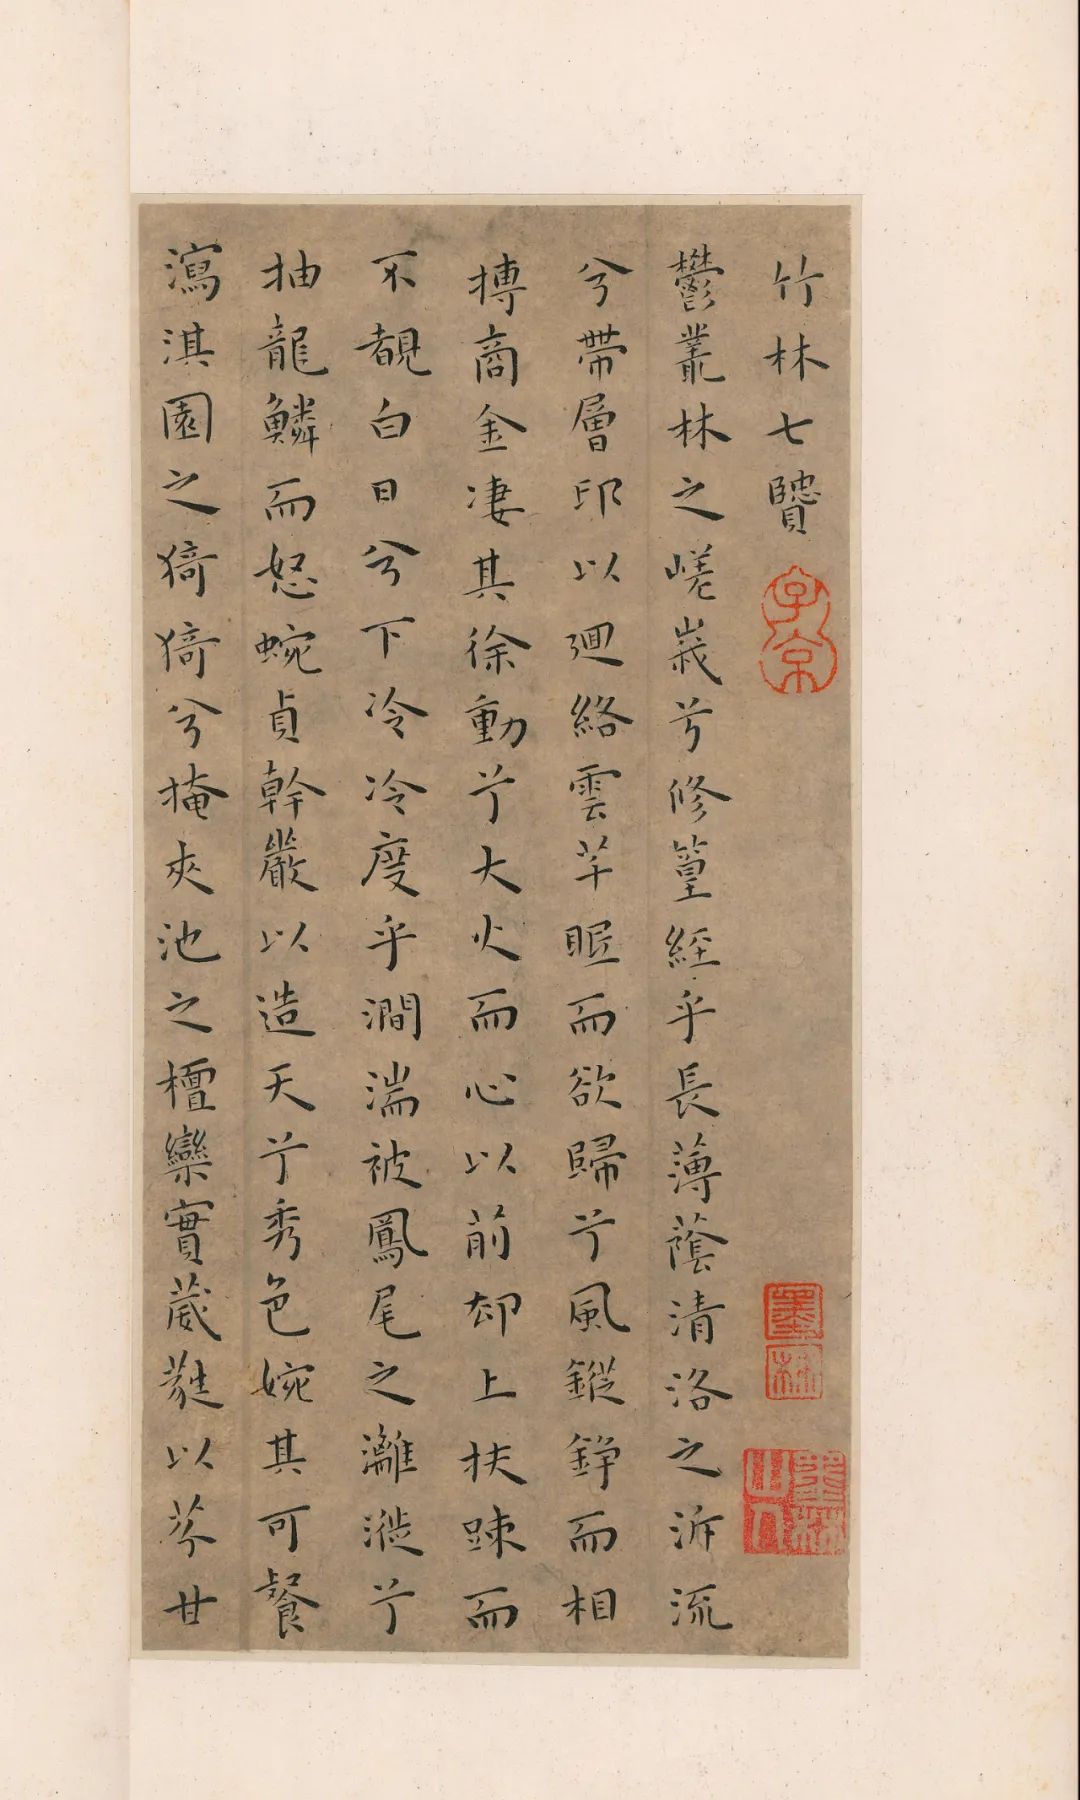 竹林七贒
子京
墨林
墨林山人
鬱叢林之嵯峩兮修篁經乎長薄蔭清洛之泝流
兮帶層印以迴絡雲芊眠而欲歸兮風鏦錚而相
摶商金凄其徐動兮大火而心以前却上扶踈而
不覩白日兮下冷冷度乎澗湍被鳳尾之灕漇兮
抽龍鱗而怒蜿貞幹嚴以造天兮秀色婉其可餐
瀉淇園之猗猗兮掩夾池之檀欒實葳蕤以芬甘